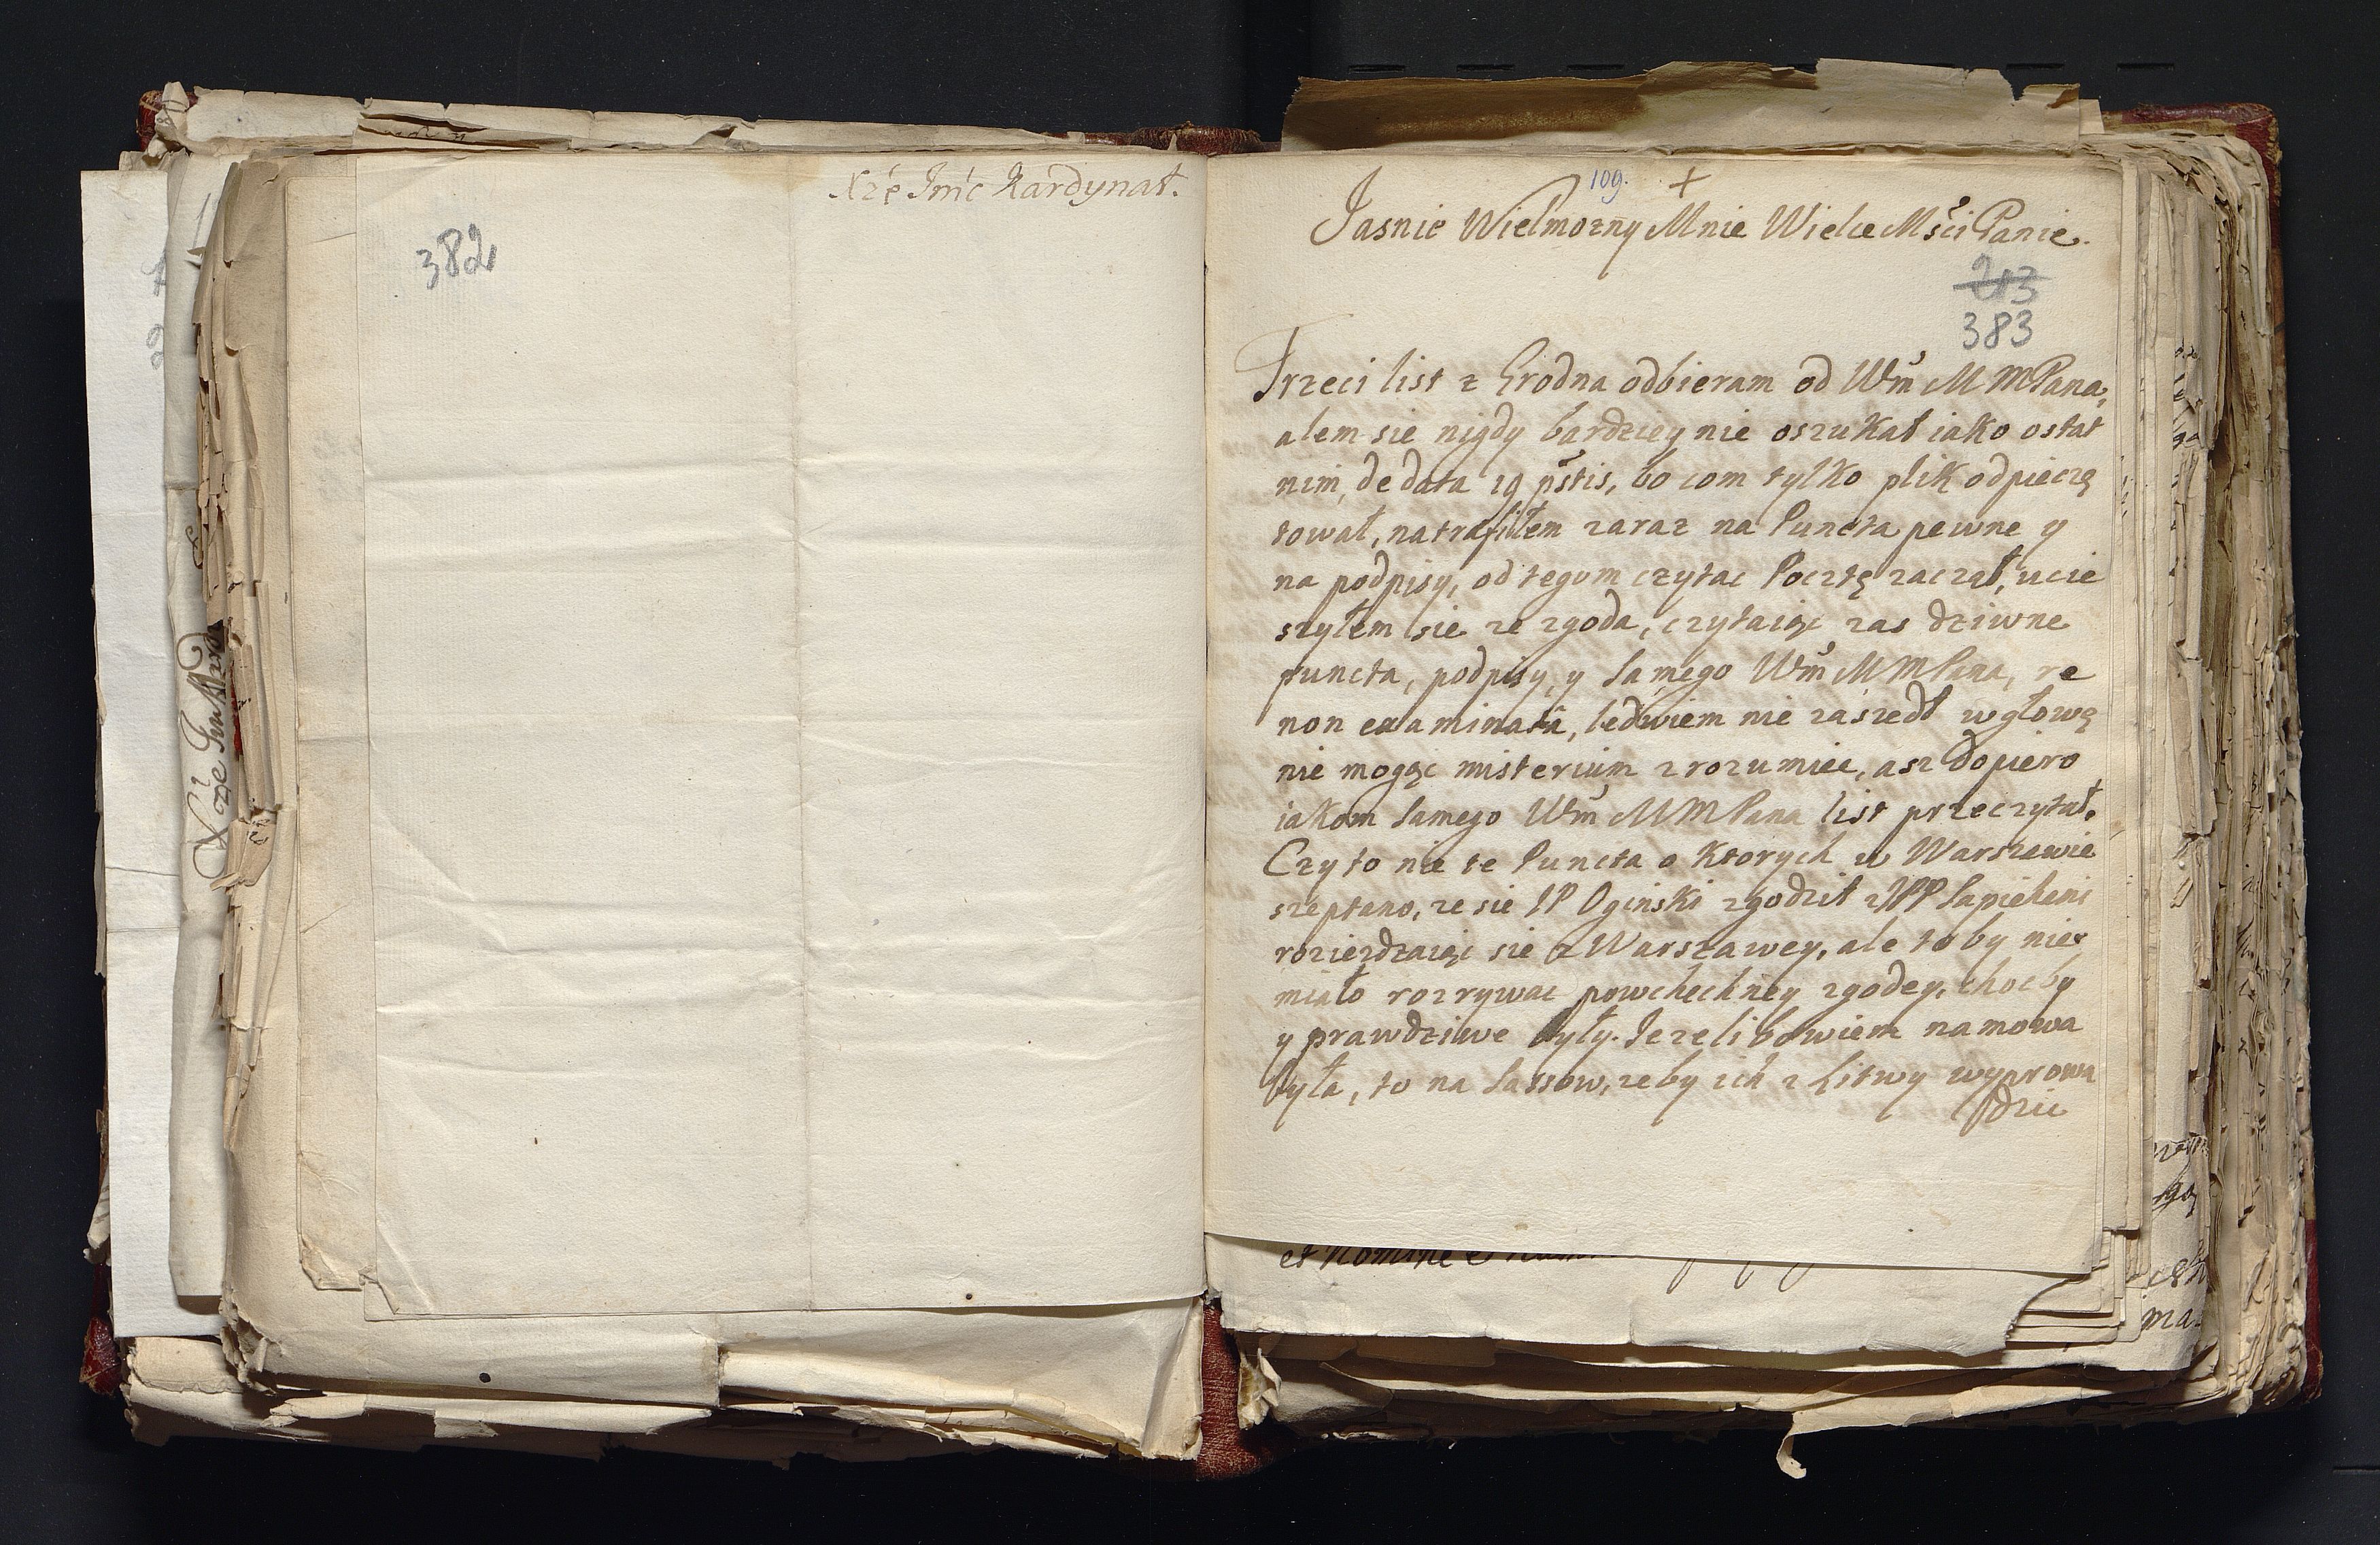 Xżé Jmć Kardynał.
382
109. +
Jasnie Wielmozny Mnie Wielce Mści Panie.
213
383
Trzeci list z Grodna odbieram od Wm̃ M MPana,
alem sie nigdy bardziey nie oszukał iako ostat
nim, de data 19 p̃stis, bo com tylko plik odpieczę
tował, natrafiłem zaraz na Puncta pewne y
na podpisy, od tegom czytac Pocztę zaczął, ucie
szyłem sie ze zgoda, czytaiąc zas dziwne
puncta, podpisy, y samego Wm̃ MMPana, re
non examinata, ledwiem nie zaszedł w głowę
nie mogąc misterium zrozumiec, asz dopiero
iakom samego Wm̃ MMPana list przeczytał.
Czy to nie te Puncta o Ktorych w Warszawie
szeptano, ze sie JP Oginski zgodził z JPP Sapiehami
roziezdzaiąc sie z Warszawey, ale to by nie
miało rozrywac powchechney zgodey, chocby
y prawdziwe były. Jezeli bowiem namowa
była, to na Sassow, zeby ich z Litwy wyprowa
dzic
et Nomine
Xże
ma